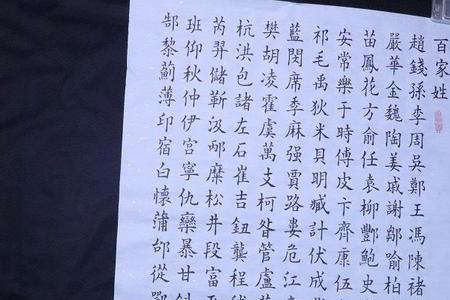 百家姓
趙錢孫李周吳鄭王馮陳褚
嚴華金魏陶姜戚謝鄒喻柏
苗鳳花方俞任袁柳酆鮑史
安常樂于時傅皮卞齊康伍
祁毛禹狄米貝明臧計伏成
藍閔席季麻强賈路婁危江
樊胡凌霍虞萬支柯昝管盧
杭洪包諸左石崔吉鈕龔程
芮羿儲靳汲邴糜松井段富
班仰秋仲伊宮寧仇欒暴甘
郜黎薊薄印宿白懷蒲邰從